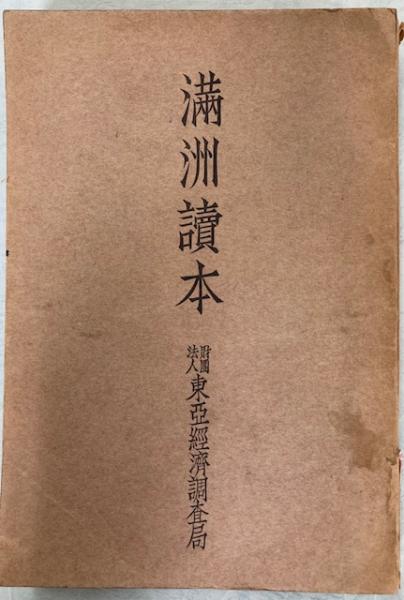 滿洲讀本
財團法人東亞經濟調査局